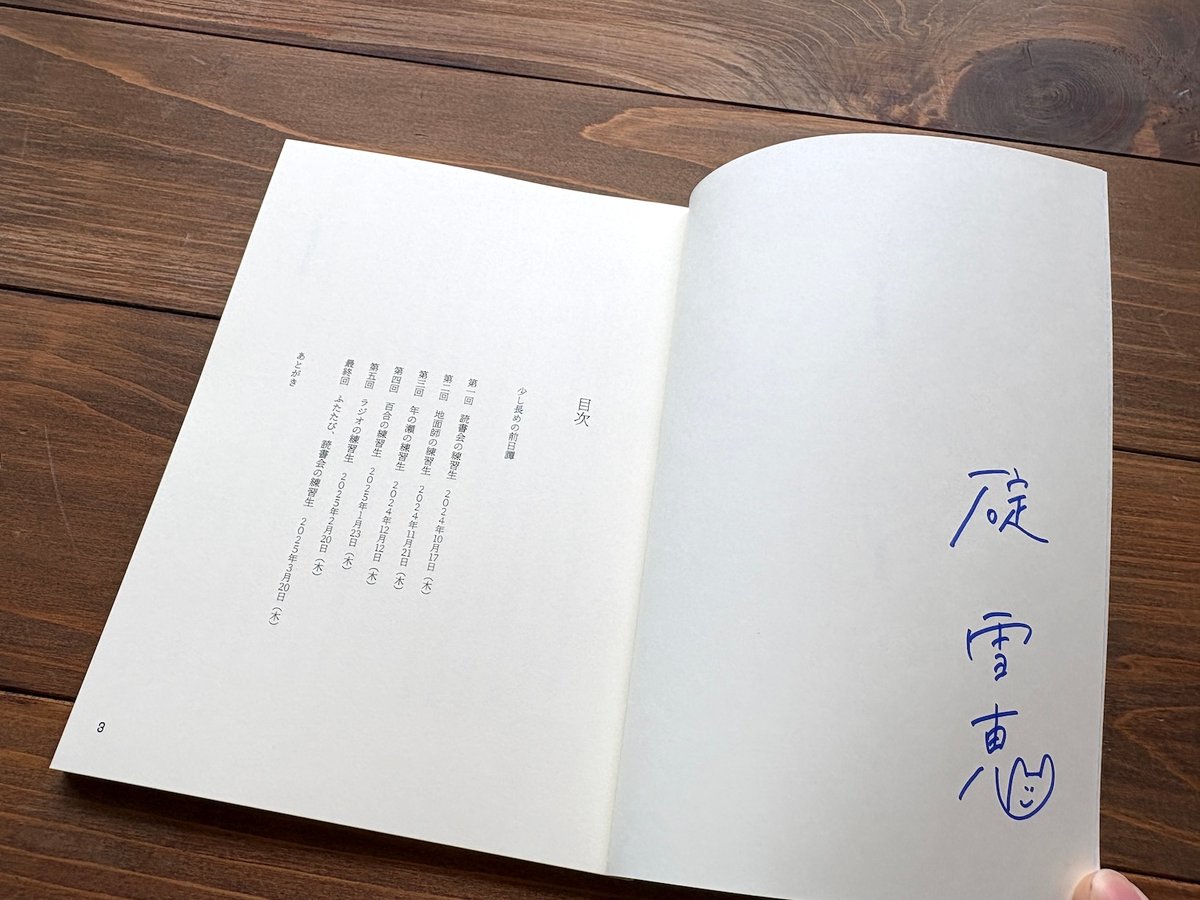 碇 雪恵
目次
少し長めの前日譚
第一回 読書会の練習生 2024年10月17日（木）
第二回 地面師の練習生 2024年11月21日（木）
第三回 年の瀬の練習生 2024年12月12日（木）
第四回 百合の練習生 2025年1月23日（木）
第五回 ラジオの練習生 2025年2月20日（木）
最終回 ふたたび、読書会の練習生 2025年3月20日（木）
あとがき
3